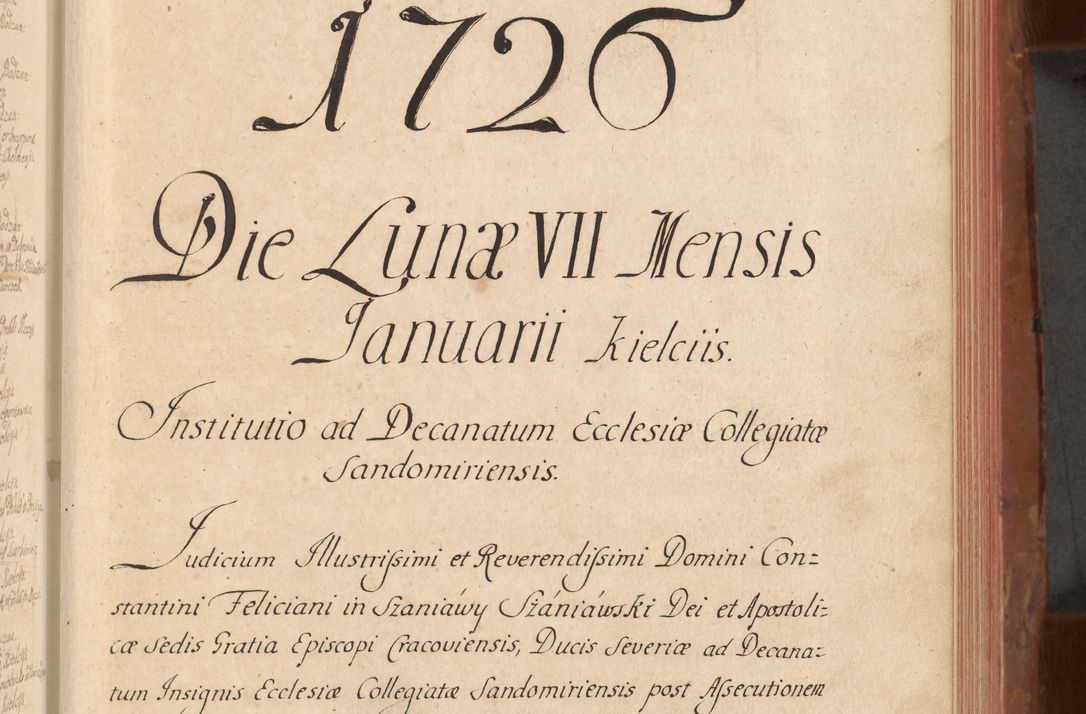 1726
Die Lunæ VII Mensis
Januarii Kielciis.
Institutio ad Decanatum Ecclesiæ Collegiatæ
Sandomiriensis.
Judicium Illustrissimi et Reverendissimi Domini Con=
stantini Feliciani in Szaniáwy Szániáwski Dei et Apostoli=
cæ Sedis Gratia Episcopi Cracoviensis, Ducis Severiæ ad Decana=
tum Insignis Ecclesiæ Collegiatæ Sandomiriensis post Assecutionem